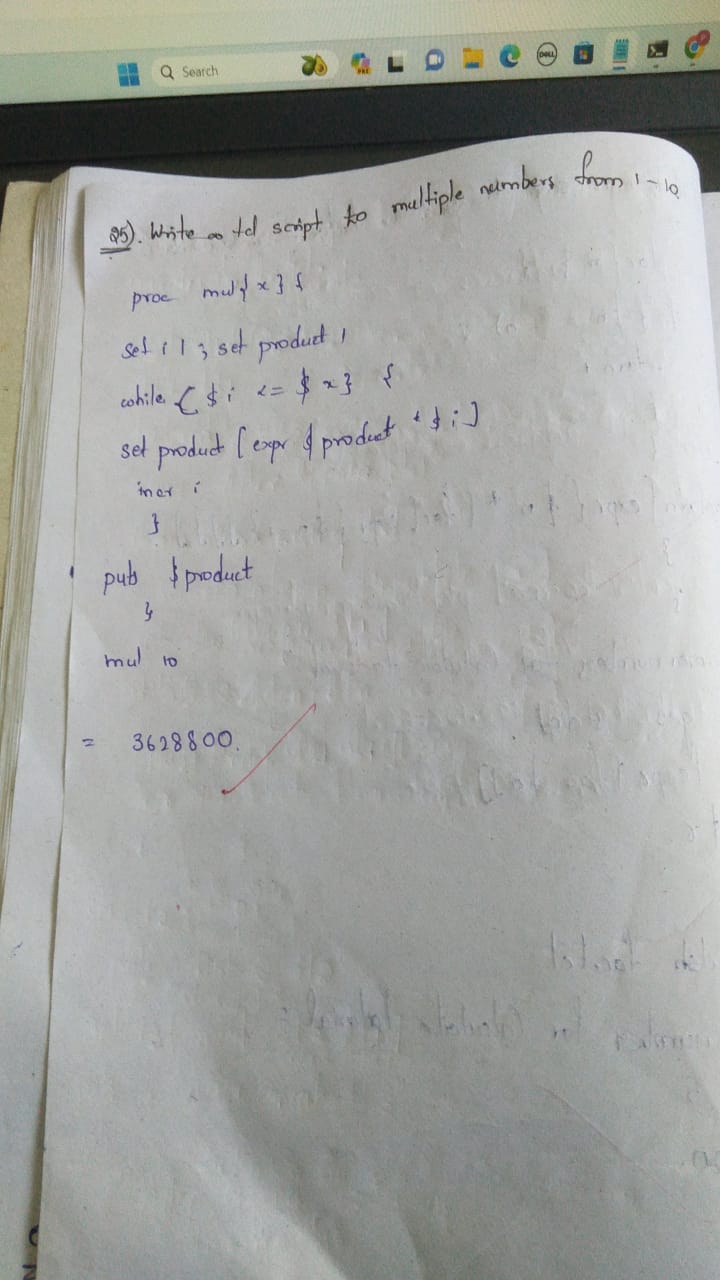 Search
PRE
DELL
25). Write a tcl script to multiple numbers from 1-10
proc mul{x} {
set i 1 ; set product 1
while {$i <= $x} {
set product [expr $product * $i]
incr i
}
puts $product
}
mul 10
= 3628800.